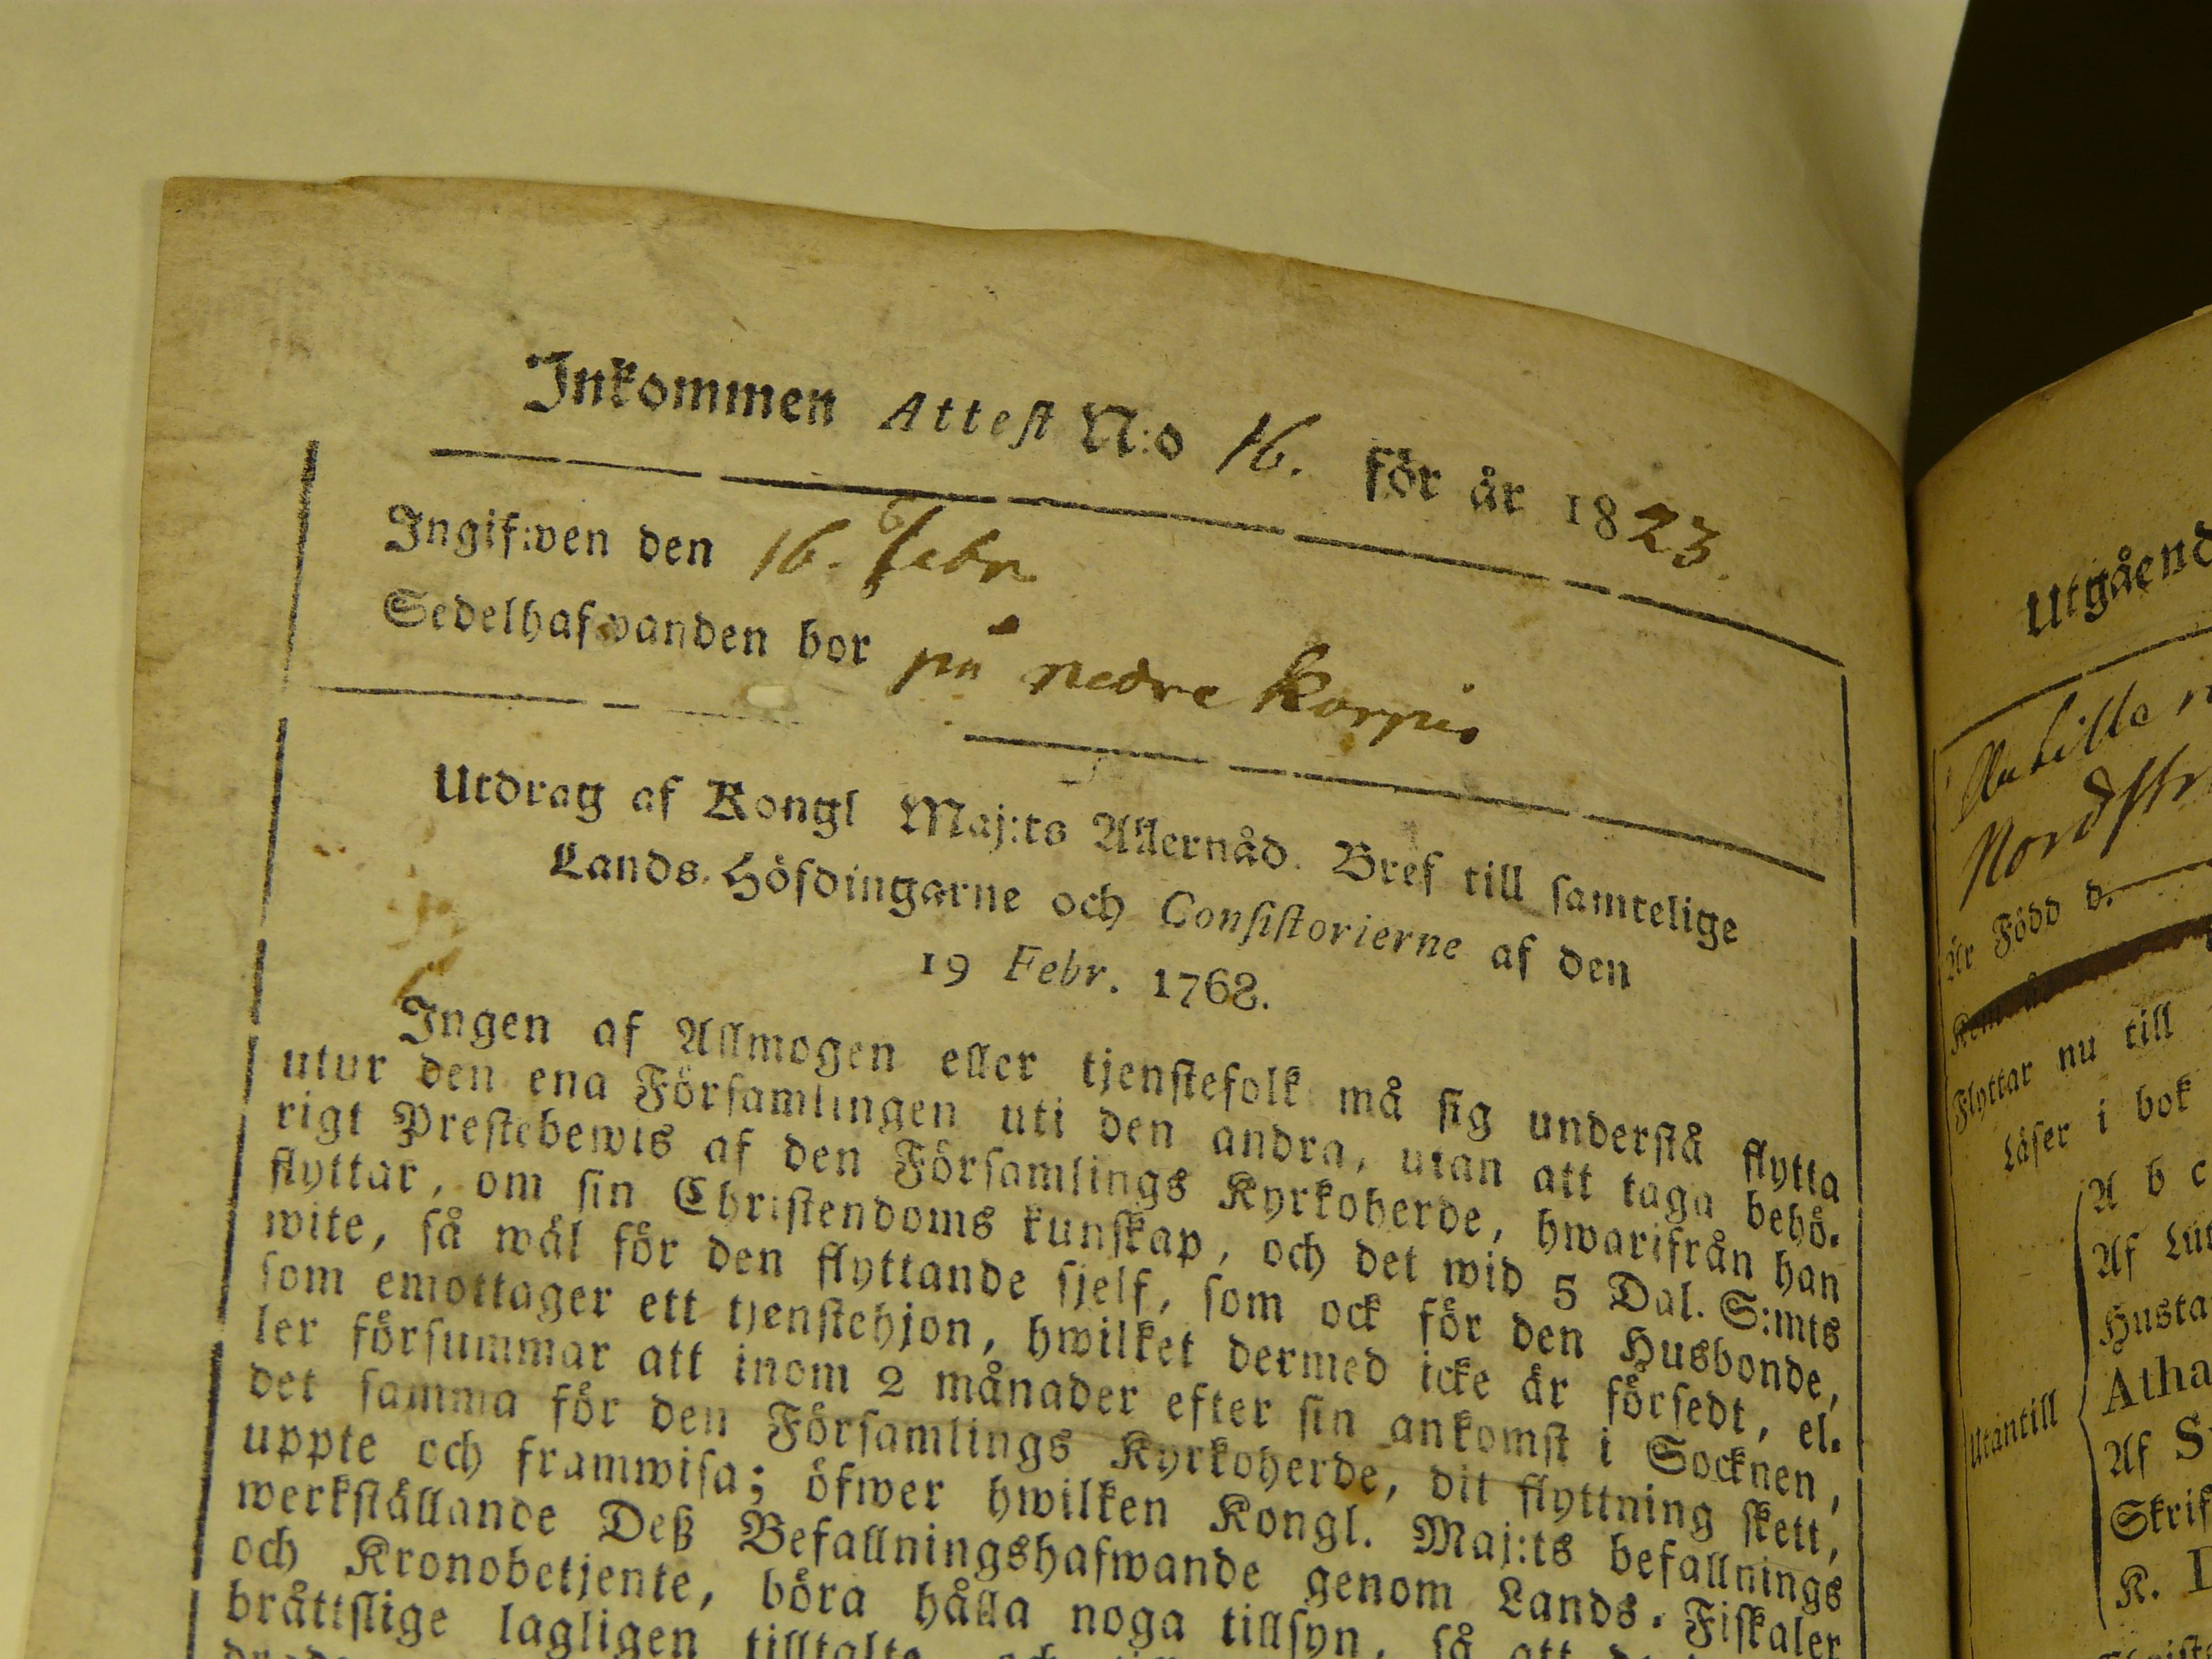 Inkommen Attest N:o 16. för år 1823.
Ingifwen den 16. Febr
Sedelhafwanden bor på nedre Korpis
Utdrag af Kongl Maj:ts Allernåd. Bref till samtelige
Lands-Höfdingarne och Consistorierne af den
19 Febr. 1768.
Ingen af Allmogen eller tjenstefolk må sig understå flytta
utur den ena Församlingen uti den andra, utan att taga behö-
rigt Prestebewis af den Församlings Kyrkoherde, hwarifrån han
flyttar, om sin Christendoms kunskap, och det wid 5 Dal. S:mts
wite, så wäl för den flyttande sjelf, som ock för den Husbonde,
som emottager ett tjenstehjon, hwilket dermed icke är försedt, el-
ler försummar att inom 2 månader efter sin ankomst i Socknen,
det samma för den Församlings Kyrkoherde, dit flyttning skett,
uppte och framwisa; öfwer hwilken Kongl. Maj:ts befallnings
werkställande Deß Befallningshafwande genom Lands-Fiskaler
och Kronobetjente, böra hålla noga tillsyn, så att
bråttslige lagligen tilltalte
Utgåend
Nordstr
Är Född d.
Flyttar nu till
Läser i bok
Utantill
A b c
Af Lut
Husta
Atha
Af S
Skrif
K. D